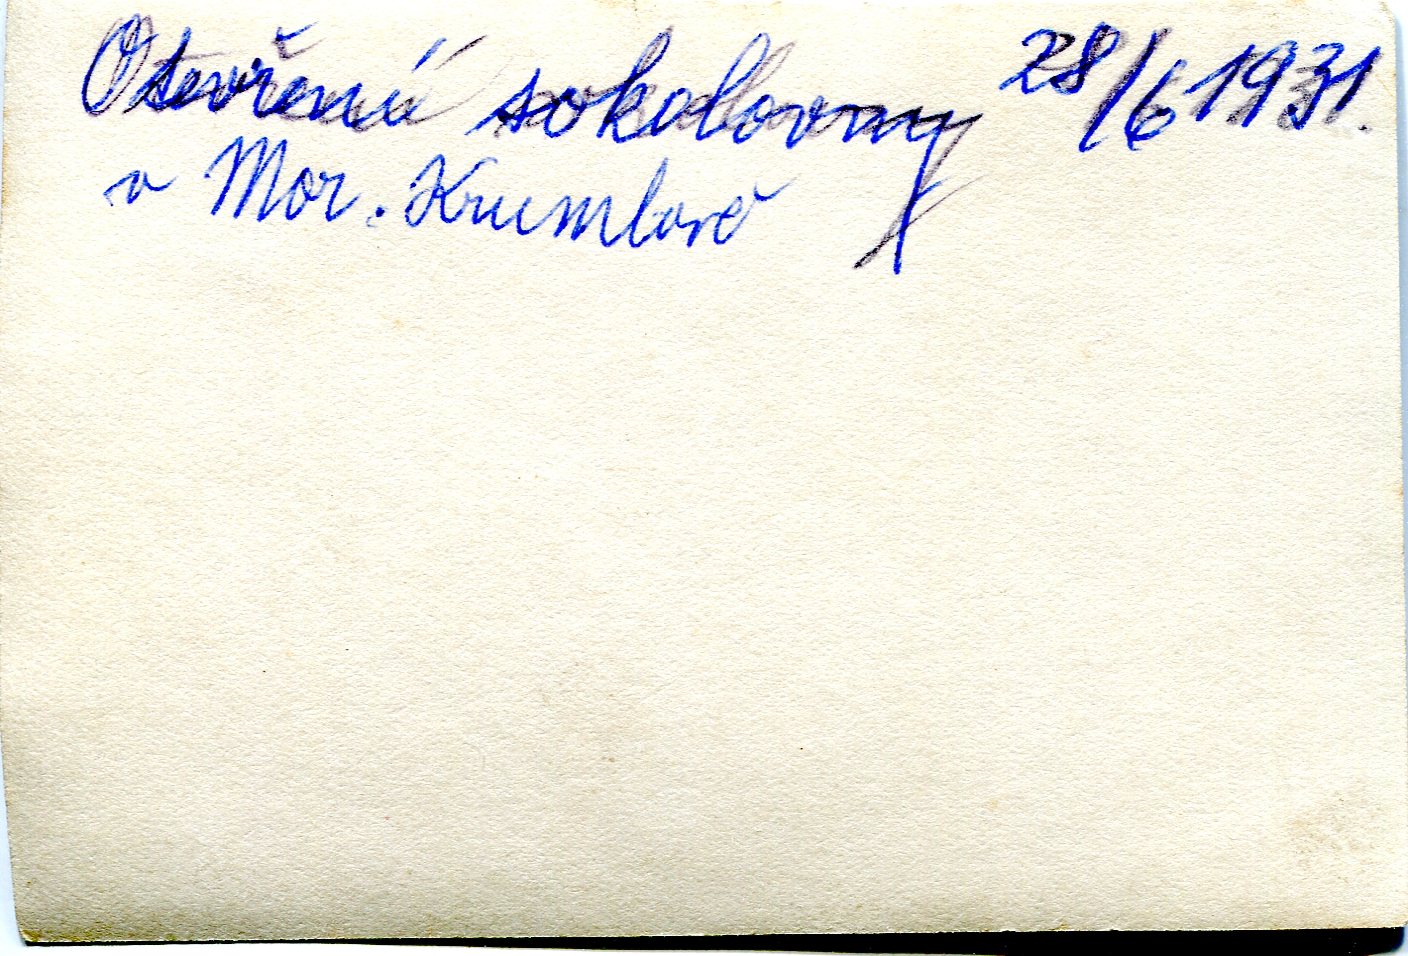 Otevření sokolovny 28/6 1931.
v Mor. Krumlově